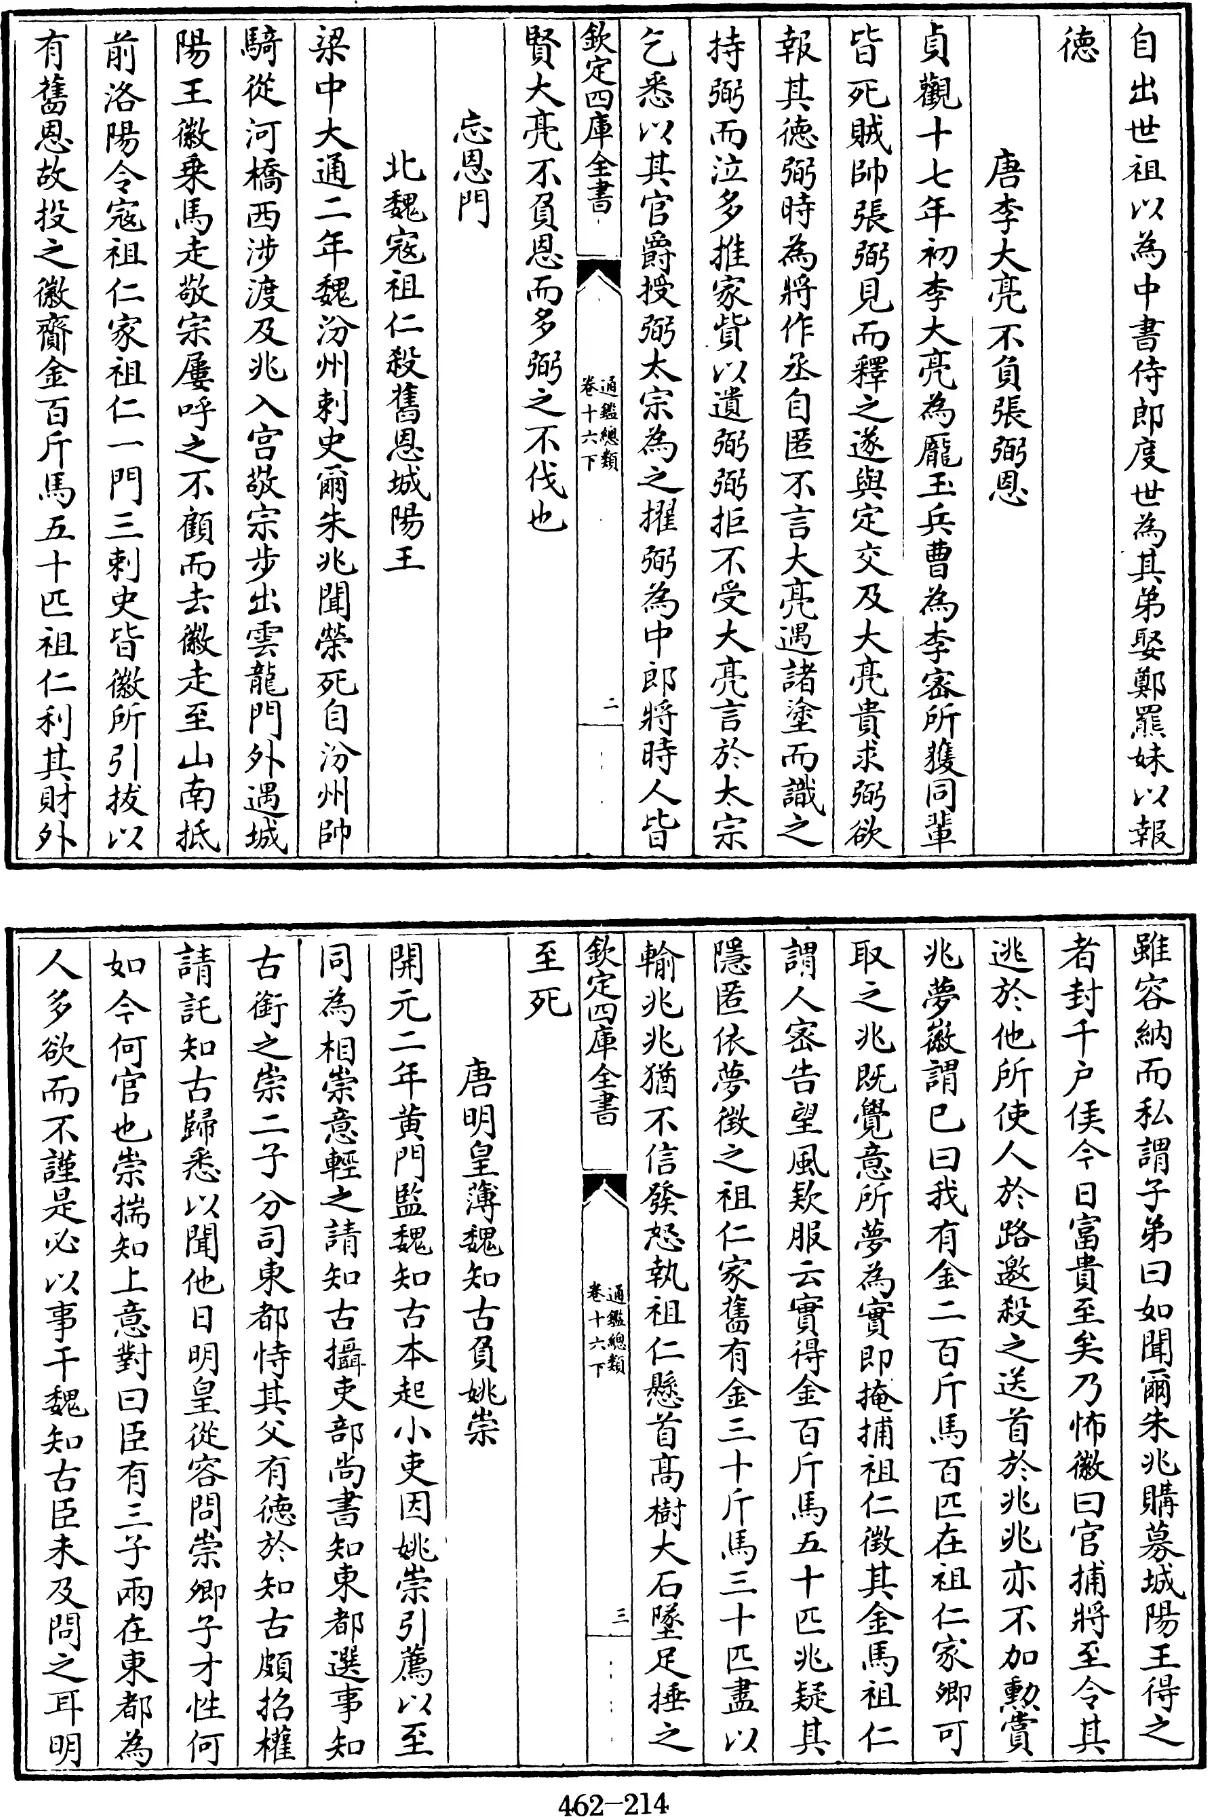 自出世祖以為中書侍郎度世為其弟娶鄭羆妹以報
德
唐李大亮不負張弼恩
貞觀十七年初李大亮為龐玉兵曹為李密所獲同輩
皆死賊帥張弼見而釋之遂與定交及大亮貴求弼欲
報其德弼時為將作丞自匿不言大亮遇諸塗而識之
持弼而泣多推家貲以遺弼弼拒不受大亮言於太宗
乞悉以其官爵授弼太宗為之擢弼為中郎將時人皆
欽定四庫全書
通鑑總類
卷十六下
二
賢大亮不負恩而多弼之不伐也
忘恩門
北魏寇祖仁殺舊恩城陽王
梁中大通二年魏汾州刺史爾朱兆聞榮死自汾州帥
騎從河橋西涉渡及兆入宫敬宗步出雲龍門外遇城
陽王徽乗馬走敬宗屢呼之不顧而去徽走至山南抵
前洛陽令寇祖仁家祖仁一門三刺史皆徽所引拔以
有舊恩故投之徽齎金百斤馬五十匹祖仁利其財外
雖容納而私謂子弟曰如聞爾朱兆購募城陽王得之
者封千户侯今日富貴至矣乃怖徽曰官捕將至令其
逃於他所使人於路邀殺之送首於兆兆亦不加勲賞
兆夢徽謂已曰我有金二百斤馬百匹在祖仁家卿可
取之兆既覺意所夢為實即掩捕祖仁徵其金馬祖仁
謂人密告望風欵服云實得金百斤馬五十匹兆疑其
隱匿依夢徵之祖仁家舊有金三十斤馬三十匹盡以
輸兆兆猶不信發怒執祖仁懸首髙樹大石墜足捶之
欽定四庫全書
通鑑總類
卷十六下
三
至死
唐明皇薄魏知古負姚崇
開元二年黄門監魏知古本起小吏因姚崇引薦以至
同為相崇意輕之請知古攝吏部尚書知東都選事知
古銜之崇二子分司東都恃其父有德於知古頗招權
請託知古歸悉以聞他日明皇從容問崇卿子才性何
如今何官也崇揣知上意對曰臣有三子兩在東都為
人多欲而不謹是必以事干魏知古臣未及問之耳明
462-214